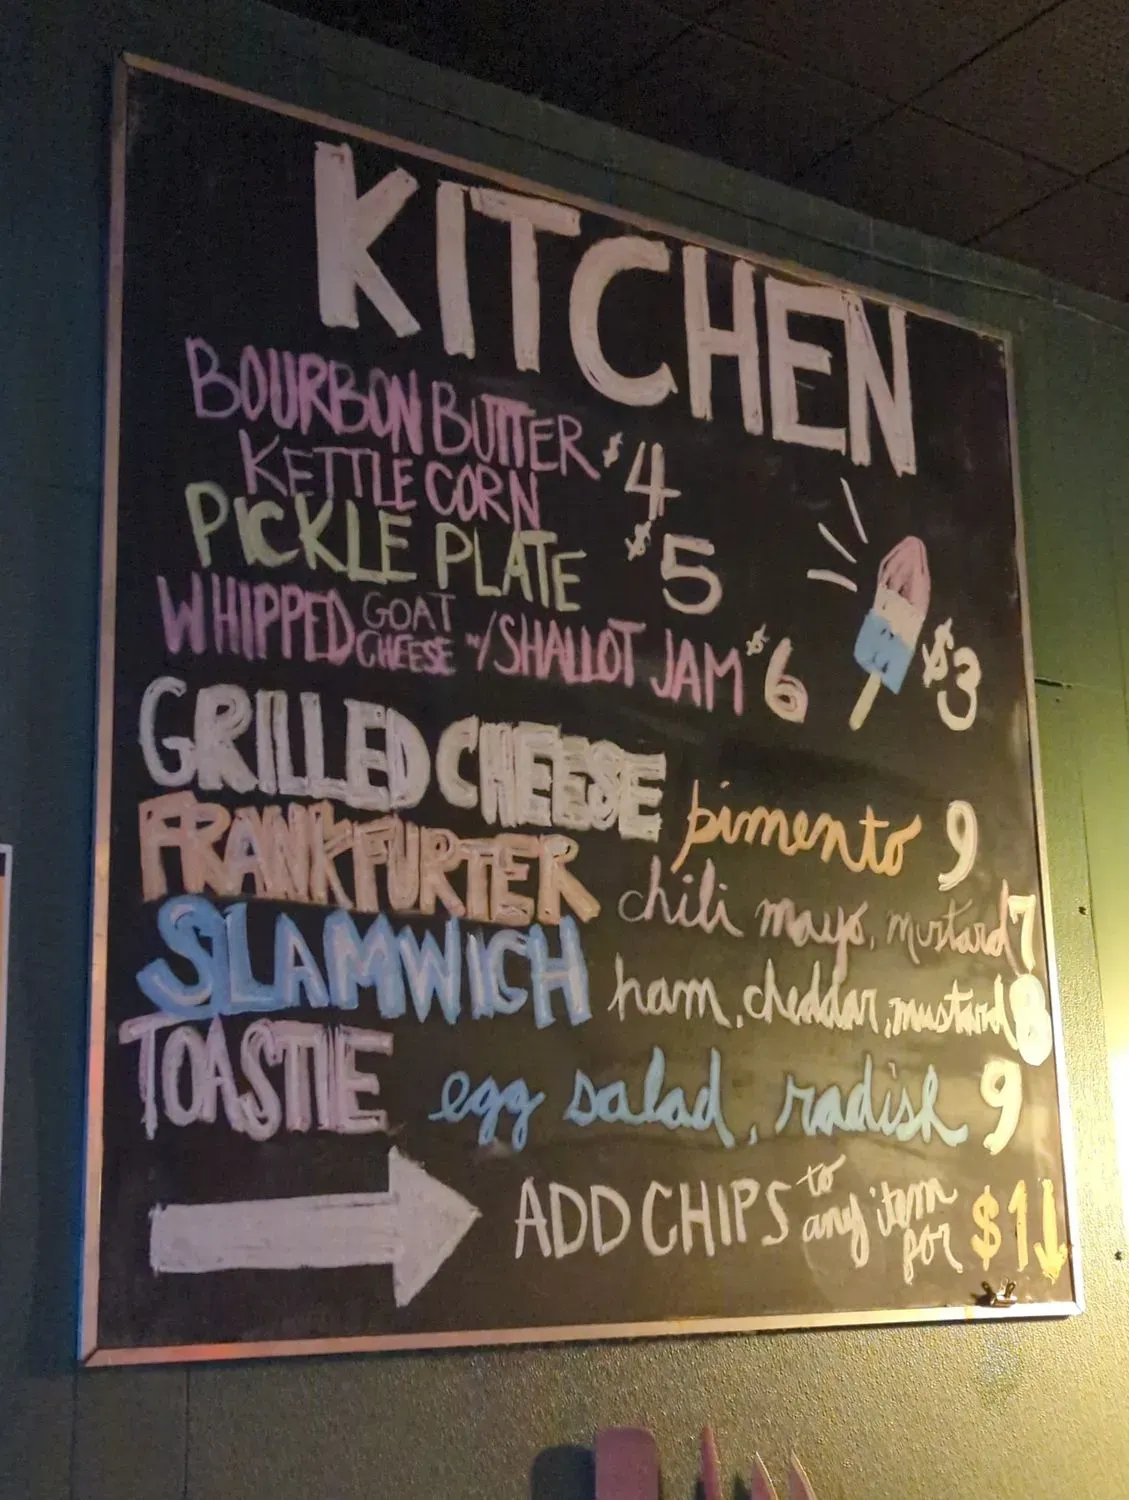 KITCHEN
BOURBON BUTTER
KETTLE CORN $4
PICKLE PLATE $5
WHIPPED GOAT CHEESE w/SHALLOT JAM $6
$3
GRILLED CHEESE pimento 9
FRANKFURTER chili mayo, mustard 7
SLAMWICH ham, cheddar, mustard 8
TOASTIE egg salad, radish 9
ADD CHIPS to any item for $1